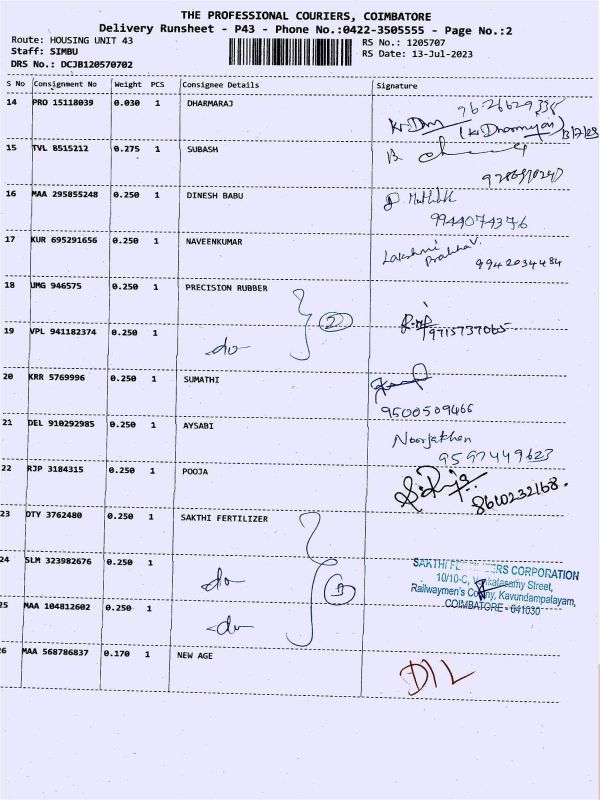 THE PROFESSIONAL COURIERS, COIMBATORE
Delivery Runsheet - P43 - Phone No.:0422-3505555 - Page No.:2
Route: HOUSING UNIT 43 RS No.: 1205707
Staff: SIMBU RS Date: 13-Jul-2023
DRS No.: DCJB120570702
S No Consignment No Weight PCS Consignee Details Signature
14 PRO 15118039 0.030 1 DHARMARAJ
15 TVL 8515212 0.275 1 SUBASH
16 MAA 295855248 0.250 1 DINESH BABU
9944074376
17 KUR 695291656 0.250 1 NAVEENKUMAR Lakshmi
Prabha V. 9942034484
18 UMG 946575 0.250 1 PRECISION RUBBER
2
19 VPL 941182374 0.250 1 do 9715737065
20 KRR 5769996 0.250 1 SUMATHI
9500509466
21 DEL 910292985 0.250 1 AYSABI Noorjathan
9597449623
22 RJP 3184315 0.250 1 POOJA
8610232168.
23 DTY 3762480 0.250 1 SAKTHI FERTILIZER
24 SLM 323982676 0.250 1 do
SAKTHI CORPORATION
10/10-C, Street,
Railwaymen's Colony, Kavundampalayam,
COIMBATORE - 641030
25 MAA 104812602 0.250 1 do
26 MAA 568786837 0.170 1 NEW AGE D/L